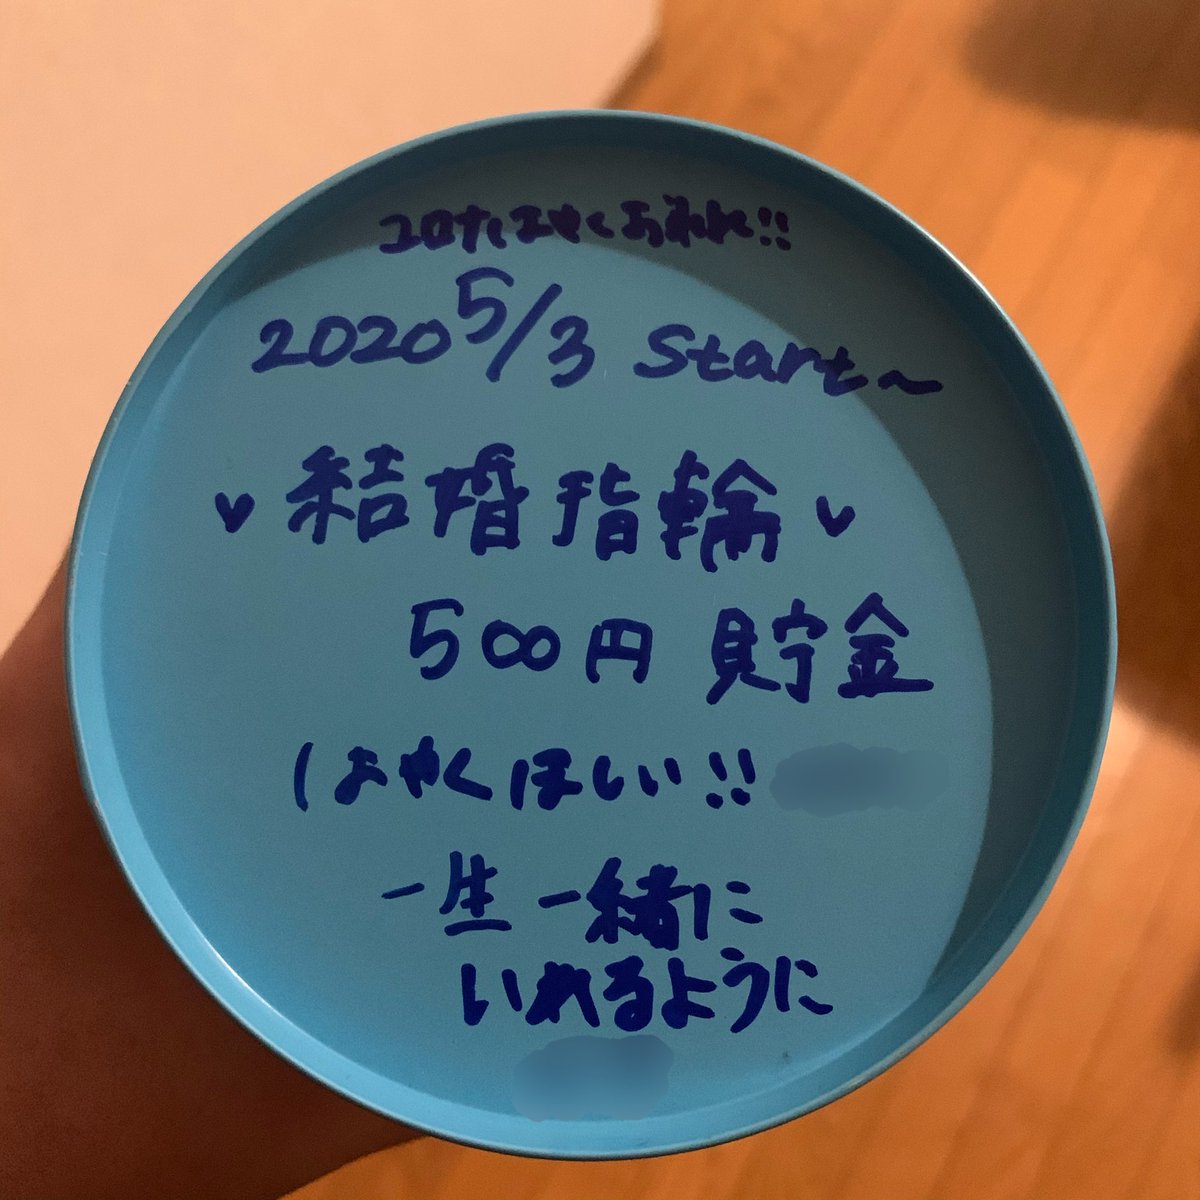 コロナはやくおわれ!!
2020 5/3 Start~
♥結婚指輪♥
500円貯金
はやくほしい!!
一生一緒に
いれるように